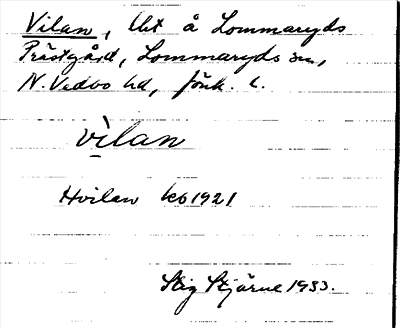 Vilan, lht å Lommaryds
Prästgård, Lommaryds sn,
N. Vedbo hd, Jönk. l.
vìlan
Hvilan kb 1921
Stig Stjärne 1933.